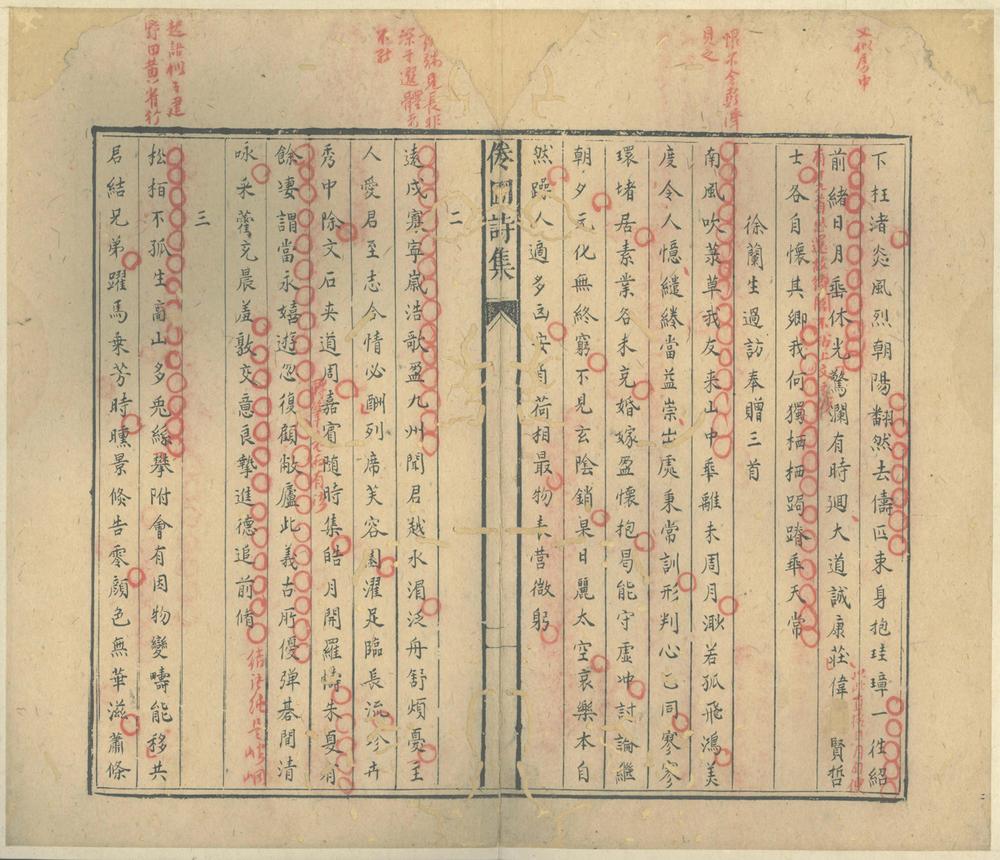 又似房中
恨不令彭澤
見之
下枉渚焱風烈朝陽翻然去儔匹束身抱珪璋一徃紹
前緒日月垂休光驚瀾有時廻大道誠康莊偉 賢哲
士各自懷其卿我何獨栖栖跼蹐乖天常
徐蘭生過訪奉贈三首
南風吹菉草我友来山中乖離未周月渺若孤飛鴻美
度令人憶繾綣當益崇出處秉常訓形判心已同寥寥
環堵居素業各未充婚嫁盈懷抱曷能守虛冲討論繼
朝夕元化無終窮不見玄陰銷杲日麗太空哀樂本自
然躁人適多 安 自荷相最物表營微躬
詩集
二
遠戍寡寧歲浩歌盈九州聞君越水湄泛舟舒煩憂主
人愛君至志今情必酬列席芙容園濯足臨長流珍卉
秀中除文石夾道周嘉賓随時集皓月開羅幬朱夏有
餘凄謂當永嬉遊忽復顧敝廬此義古所優彈碁聞清
咏采藿充晨羞敦交意良摯進德追前脩
結語純是
三
松栢不孤生高山多兎絲攀附會有因物變疇能移共
君結兄弟躍馬乗芳時曛景倏告零顏色無華滋蕭條
深于選體者
不能
起語似子建
野田黄雀行